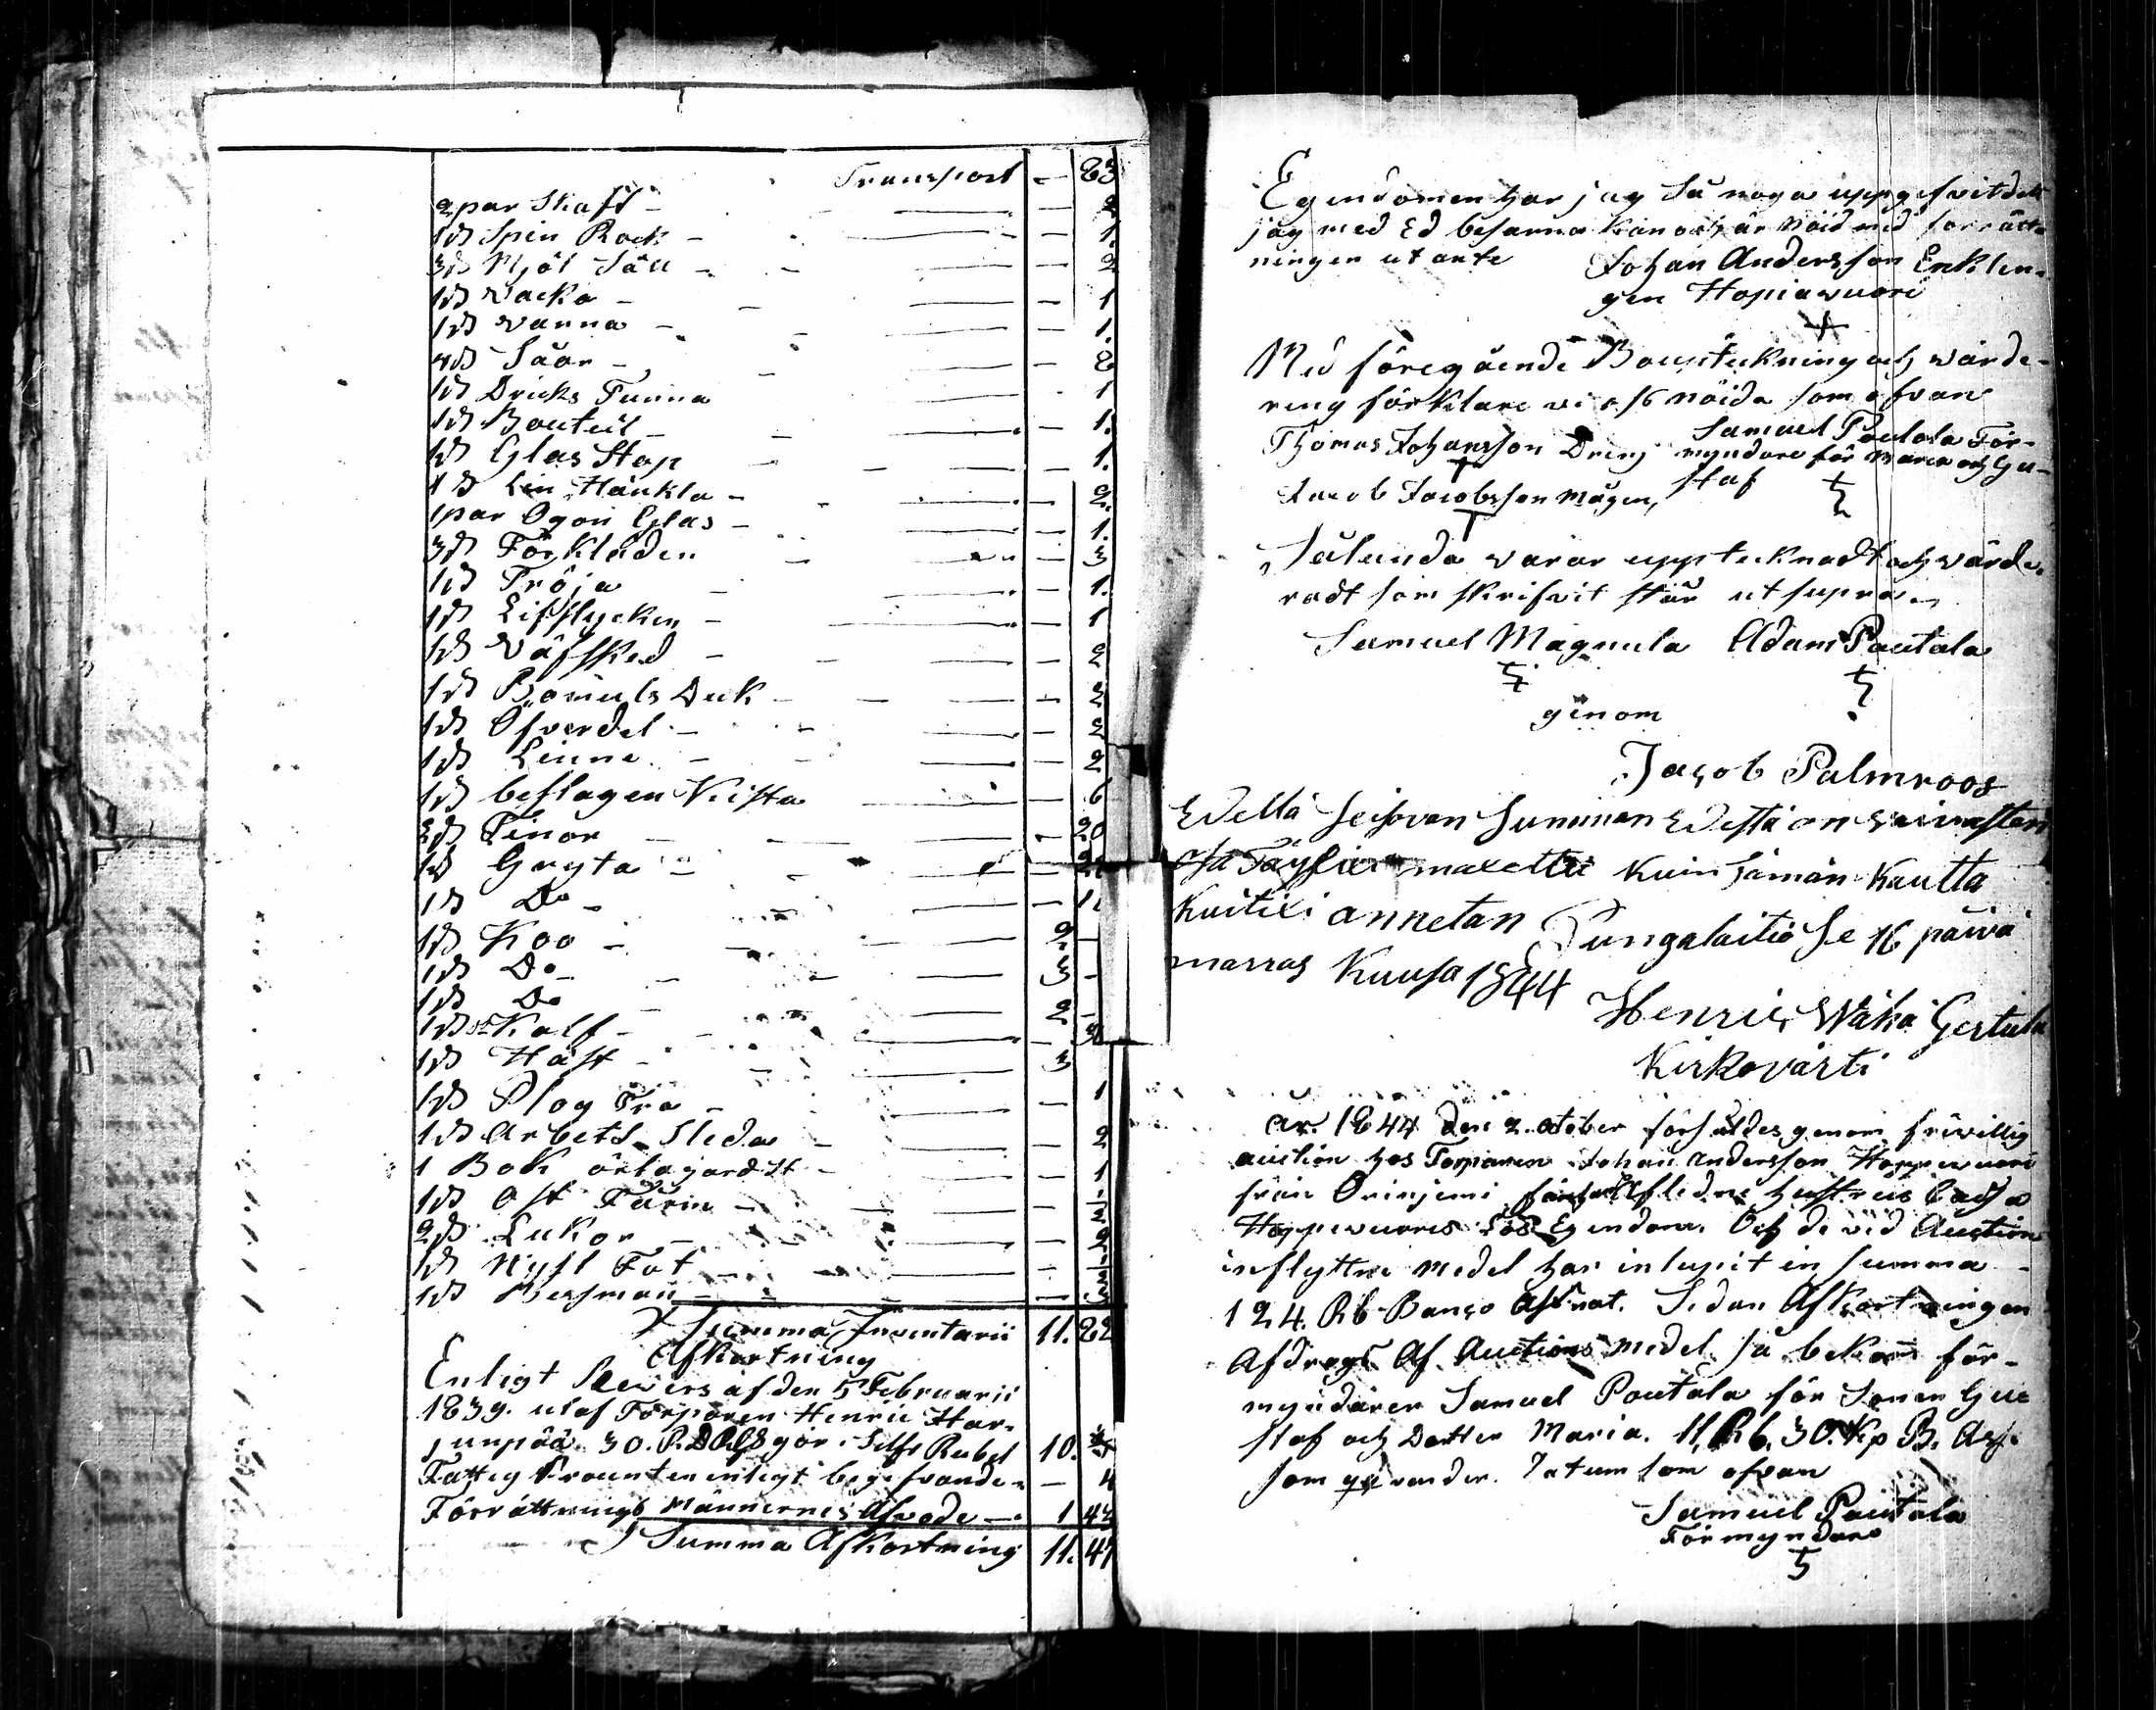 Transport — 23
2 par Skaft — — 2
1 st Spin Rock — — 1.
3 st Mjöl Såll — — 2
1 st Wacka — — 1
1 st Wanna — — 1.
4 st Såar — — 2
1 st Dricks Tunna 1
1 st Bouteil — — 1.
1 st Glas Stop — — 1.
1 st Lin Häckla — — 2.
1 par Ögon Glas — — 1.
3 st Förkläden — 3
1 st Tröja — 1.
1 st Lifstycken — — 1
1 st Väfsked — — 2
1 st Bomuls Duk — — 2
1 st Öfverdel — — 2
1 st Linne — — 2
1 st beslagen Kista — 6
2 st Tinor — — 20
1 st Gryta — — 2
1 st Do — — 1.
1 st Koo — 2 —
1 st Do — 3 —
1 st Do 2 —
1 st Kalf —
1 st Häst — 3
1 st Plog Trä — — 1
1 st Arbets Släda — — 2
1 Bok örtagård st — 1
1 st Ost Form —
2 st Lukor — — 2
1 st Nytt Fat — —
1 st Besman — — 3
Summa Inventarii 11. 22
Afkortning
Enligt Rewers af den 5 Februarii
1839. utaf Torparen Henric Har-
junpää 30. R. gör i Silfr Rubel 10.
Fattig Procenten enligt begifvande — 4
Förrättnings Männernes Arfvode — 1 43
Summa Afkortning 11. 47
Egendomen har jag så noga uppgifvit det
jag med Ed besanna kan och är nöid med förrätt-
ningen ut ante Johan Andersson Enklin-
gen Hopiawuori
Med föregående Bouptekning och wärde-
ring förklare vi oss nöida som ofvan
Thomas Johansson Dreng Samuel Poutala För-
myndare för Maria och Gu-
staf
Jacob Jacobsson Mågen,
Sålunda warar upptecknadt och wärde-
radt som skrifvit står ut supra
Samuel Magnula Adam Poutala
genom
Jacob Palmroos
Edellä seisovan Summan Edestä on waivasten
osa Täysin maxettu kuin tämän kautta
kuitixi annetan Pungalaitio se 16 päivä
marras Kuusa 1844
Henric Wäkä Gertula
Kirkovärti
År 1844 den 2. october förhåldes genom frivillig
auction hos Torparen Johan Andersson Hoppewuori
från Orinjemi aflidne hustrus Caisa
Hoppewuores Lös Egendom. Och de vid Auction
inflyttne medel har inlupit en summa
124. Rb Banco Assnat. Sedan Afkortningen
Afdrags Af Auctions medel så bekom för-
myndaren Samuel Poutala för Sonen Gu
staf och Dotter Maria. 11. Rb. 30. Kp B. Ass.
som datum som ofvan
Samuel Poutala
Förmyndare